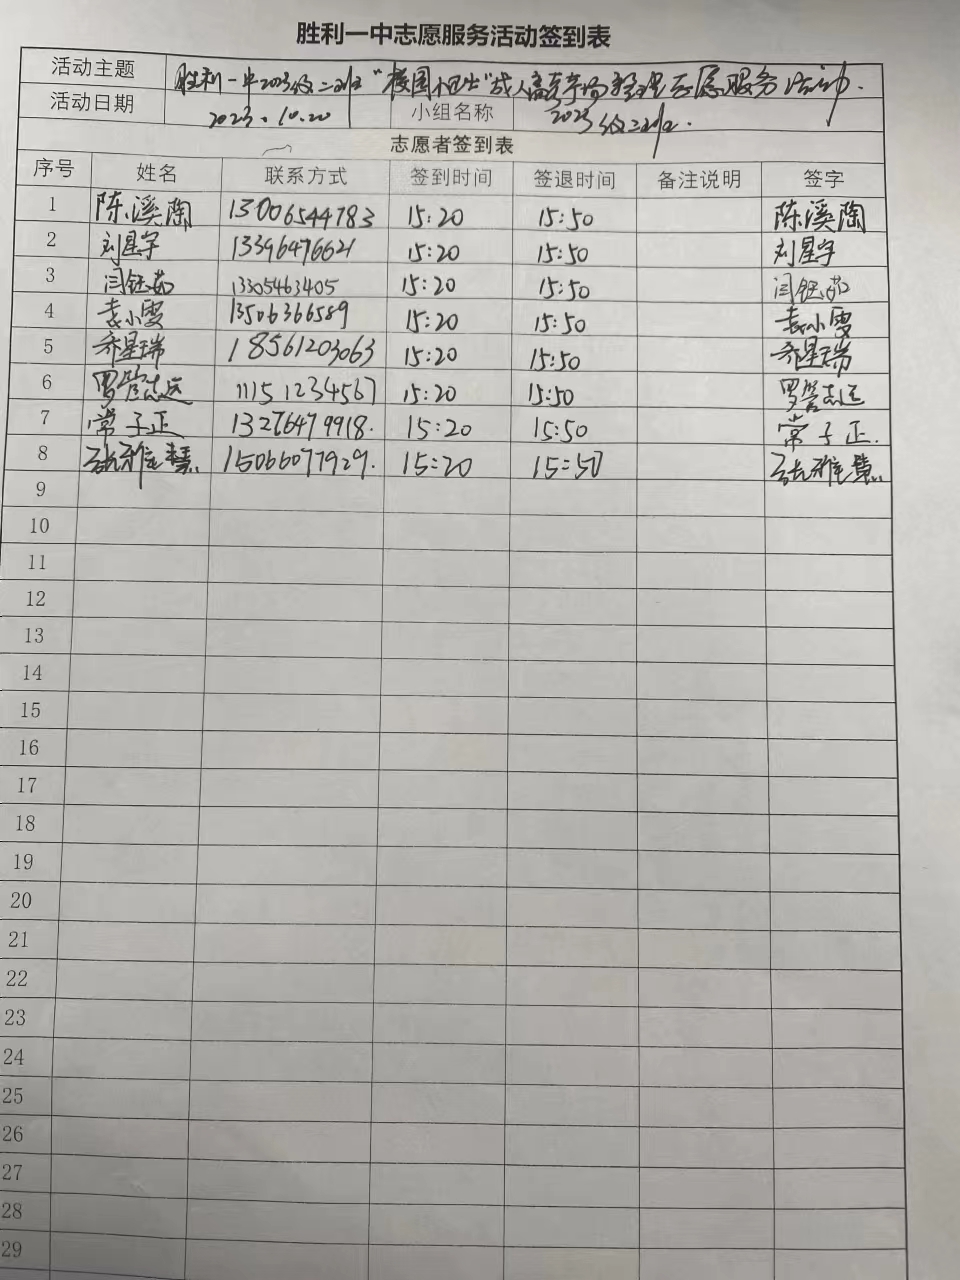 胜利一中志愿服务活动签到表
活动主题 胜利一中2023级二班"校园卫士"成人高考考场整理志愿服务活动.
活动日期 2023.10.20 小组名称 2023级二班.
志愿者签到表
序号 姓名 联系方式 签到时间 签退时间 备注说明 签字
1 陈溪陶 13006544783 15:20 15:50 陈溪陶
2 刘星宇 13396476621 15:20 15:50 刘星宇
3 闫钰茹 13305463405 15:20 15:50 闫钰茹
4 袁小雯 13506366589 15:20 15:50 袁小雯
5 乔星瑞 18561203063 15:20 15:50 乔星瑞
6 罗营志远 11151234567 15:20 15:50 罗营志远
7 常子正 13276479918. 15:20 15:50 常子正.
8 张雅慧. 15066077929. 15:20 15:50 张雅慧.
9
10
11
12
13
14
15
16
17
18
19
20
21
22
23
24
25
26
27
28
29